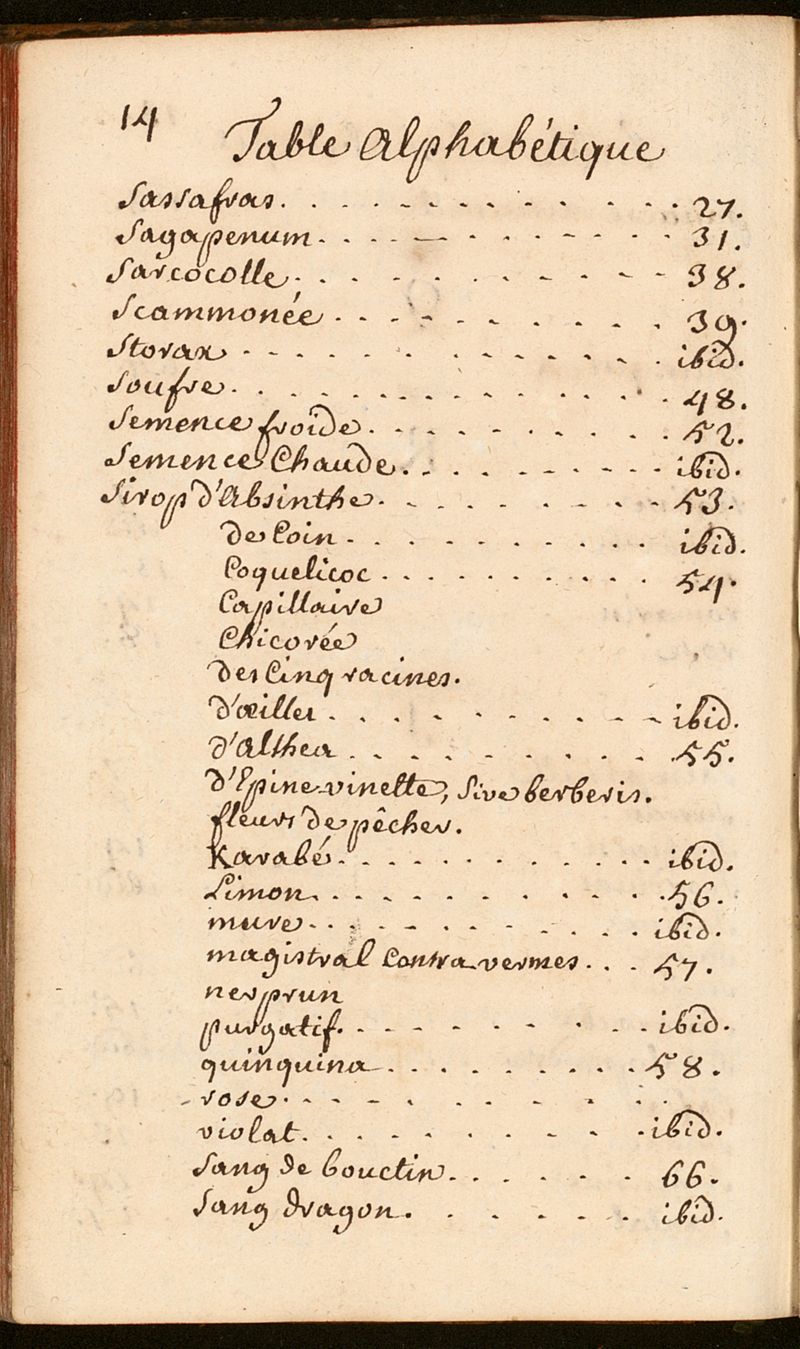 14
Table Alphabétique
Sassafras. . . . . . . . . . . . 27.
Sagapenum. . . . . . . . . . . 31.
Sarcocolle. . . . . . . . . . . 38.
Scammonée . . . . . . . . . . 39.
Storax . . . . . . . . . . . . ibid.
Soufre. . . . . . . . . . . . . 48.
Semence froide. . . . . . . . . 52.
Semence Chaude. . . . . . . . . ibid.
Sirop d'Absinthe. . . . . . . . 53.
de Coin . . . . . . . . . . ibid.
Coquelicoc . . . . . . . . . 54.
Capillaire
Chicorée
des Cinq racines.
d'œillet . . . . . . . . . . ibid.
d'Althea . . . . . . . . . . 55.
d'Epine-vinette, sive berberis.
fleurs de pêcher.
Karabé. . . . . . . . . . . ibid.
Limon. . . . . . . . . . . 56.
mure. . . . . . . . . . . ibid.
magistral Contra vermes . . . 57.
nerprun
purgatif. . . . . . . . . . ibid.
quinquina . . . . . . . . 58.
rose. . . . . . . . . .
violat. . . . . . . . . . ibid.
Sang de bouctin. . . . . . 66.
Sang dragon. . . . . . ibid.